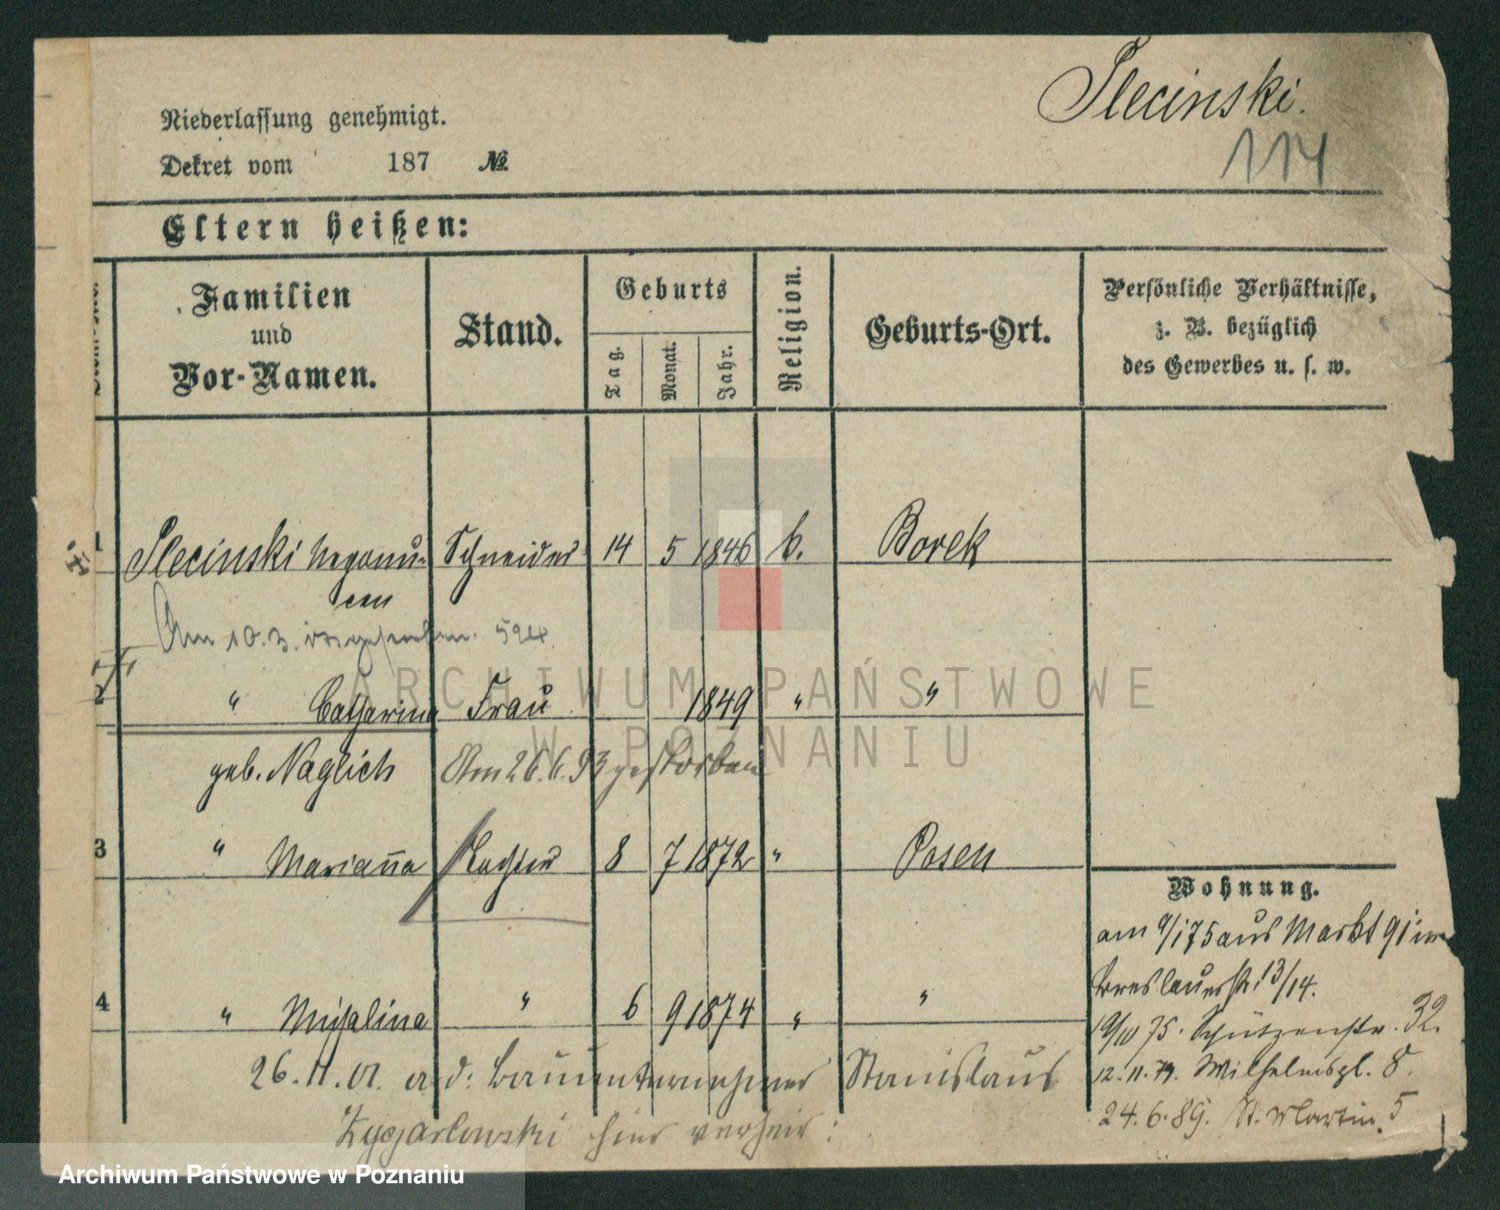 Slecinski.
114
Niederlassung genehmigt.
Dekret vom 187 №
Eltern heißen:
Familien und Vor-Namen.
Stand.
Geburts
Tag.
Monat.
Jahr.
Religion.
Geburts-Ort.
Persönliche Verhältnisse,
z. B. bezüglich
des Gewerbes u. s. w.
1 Slecinski Nepomu- Schneider 14 5 1846 k. Borek
cen
Am 10.3.
2 " Catharina Frau 1849 " "
geb. Naglich Am 26.6.93 gestorben
3 " Marianna Tochter 8 7 1872 " Posen
4 " Michalina " 6 9 1874 " "
26.11.01. a d. Bauunternehmer Stanislaus
Zygarlowski hier verheir:
Wohnung.
am 9/1 75 aus Markt 91 in
Breslauerstr. 13/14.
19/10 75. Schützenstr. 32.
12.11.79. Wilhelmspl. 8.
24.6.89. St. Martin. 5
ARCHIWUM PAŃSTWOWE
W POZNANIU
Archiwum Państwowe w Poznaniu